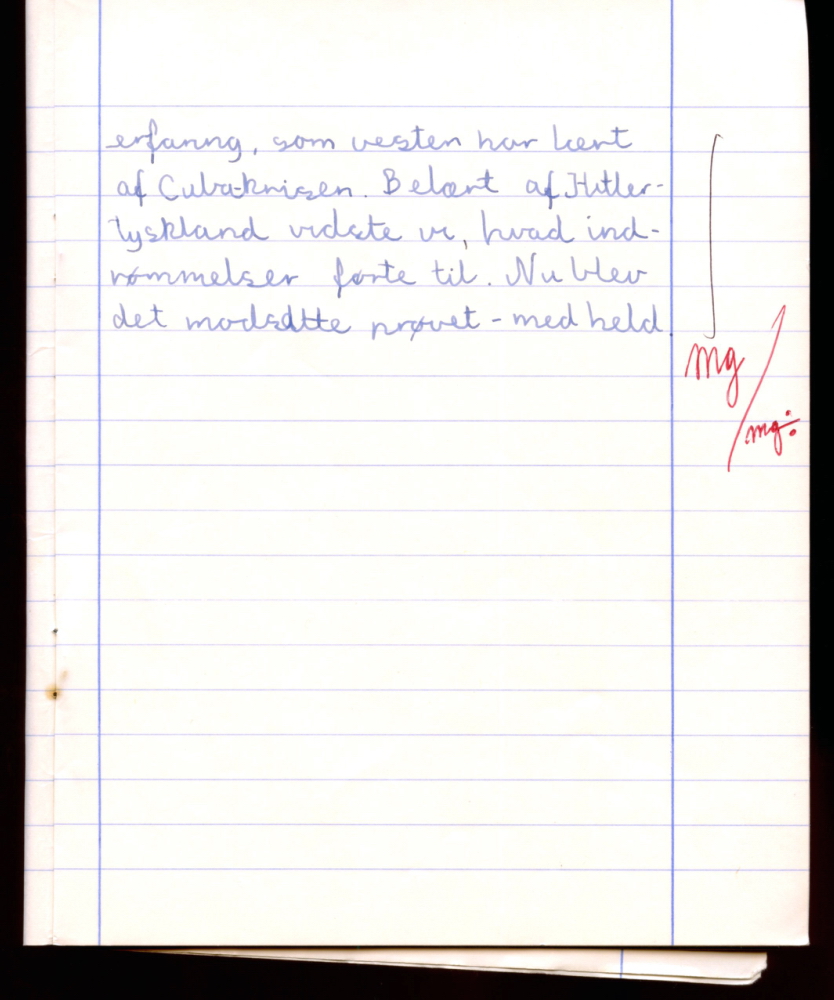 erfaring, som vesten har lært
af Cuba-krisen. Belært af Hitler-
tyskland vidste vi, hvad ind-
rømmelser førte til. Nu blev
det modsatte prøvet - med held.
mg
/
mg÷